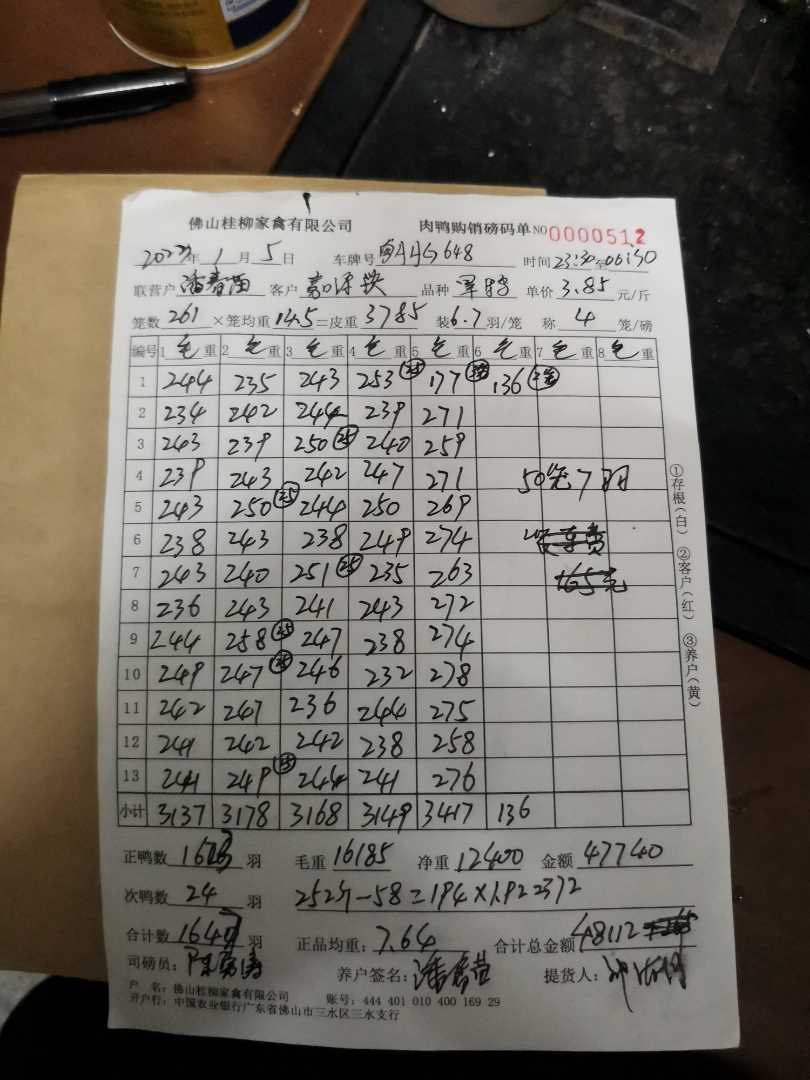 佛山桂柳家禽有限公司 肉鸭购销磅码单 NO 0000512
年 1 月 5 日 车牌号 648 时间 23:30 至 06:30
联营户 客户 品种 单价 3.85 元/斤
笼数 261 ×笼均重 14.5 =皮重 3785 装 6.7 羽/笼 称 4 笼/磅
编号 1 毛重 2 毛重 3 毛重 4 毛重 5 毛重 6 毛重 7 毛重 8 毛重
1 244 235 243 253 25 177 136
2 234 242 244 239 271
3 243 239 250 25 240 259
4 239 243 242 247 271 50笼7羽
5 243 250 25 244 250 269
6 238 243 238 249 274
7 243 240 251 25 235 263
8 236 243 241 243 272
9 244 258 25 247 238 274
10 249 247 25 246 232 278
11 242 247 236 244 275
12 241 242 242 238 258
13 241 249 25 244 241 276
小计 3137 3178 3168 3149 3417 136
①存根(白) ②客户(红) ③养户(黄)
正鸭数 1623 羽 毛重 16185 净重 12400 金额 47740
次鸭数 24 羽 252斤-58=194×1.92 372
合计数 1647 羽 正品均重: 7.64 合计总金额 48112
司磅员: 养户签名: 提货人:
户 名: 佛山桂柳家禽有限公司 账号: 444 401 010 400 169 29
开户行: 中国农业银行广东省佛山市三水区三水支行